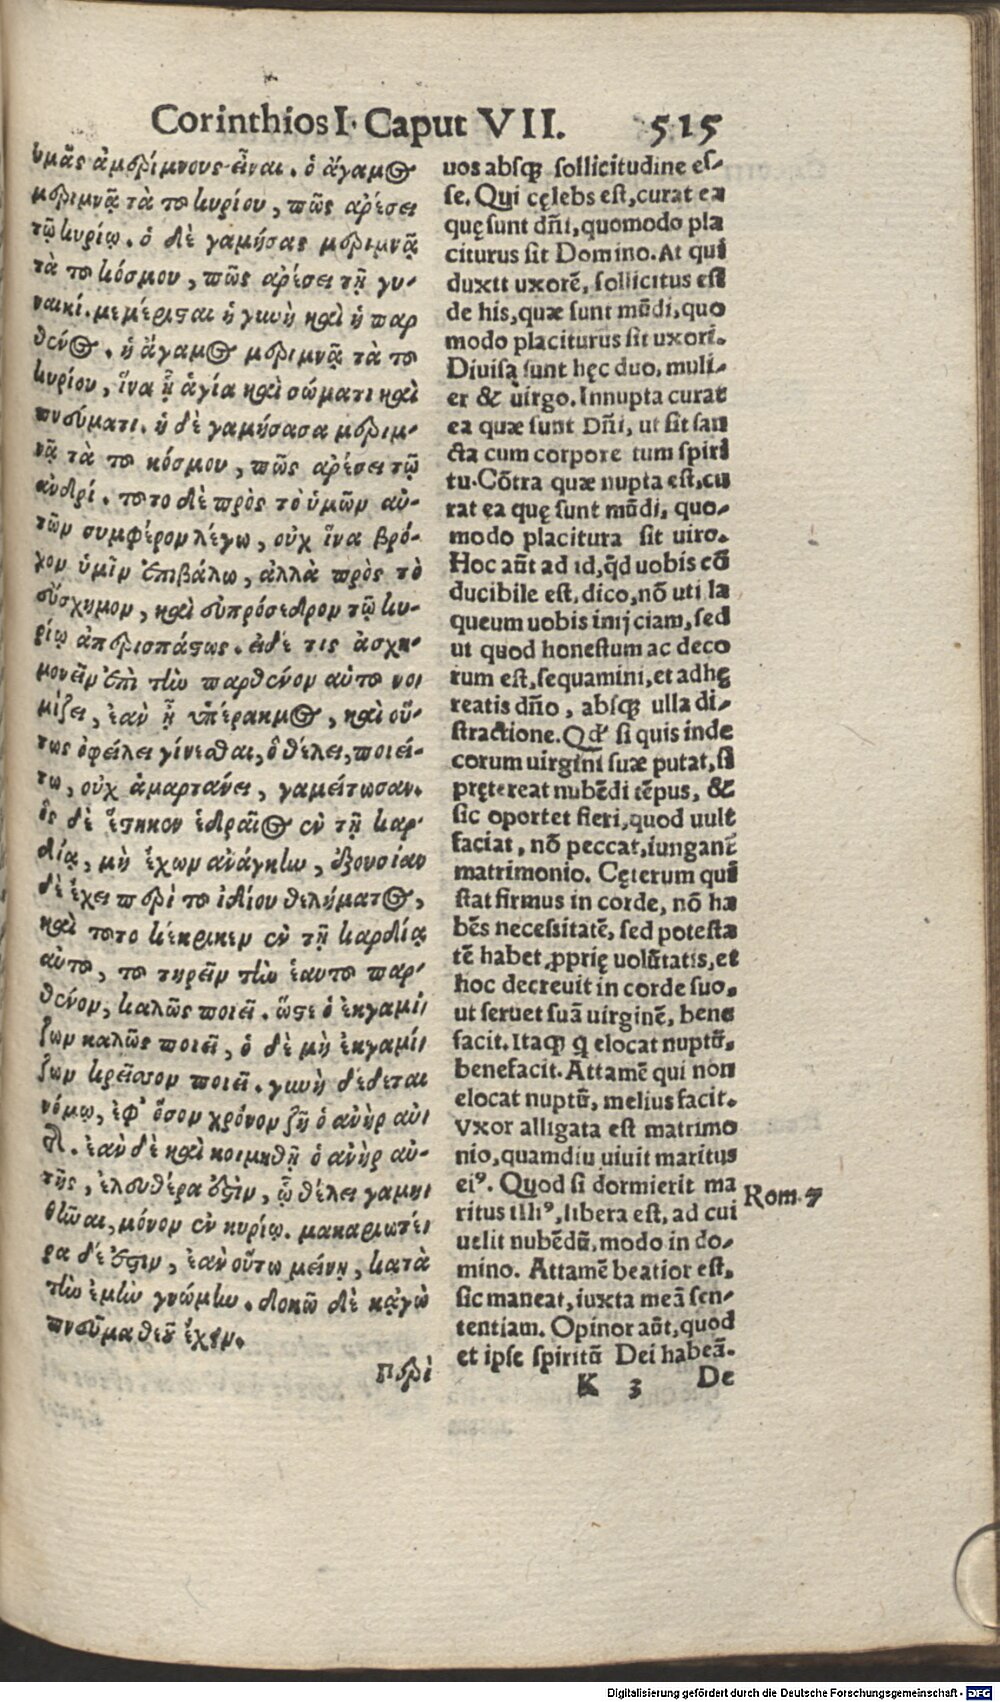 Corinthios I. Caput VII. 515
ὑμᾶς ἀμερίμνους εἶναι. ὁ ἄγαμος
μεριμνᾷ τὰ τοῦ κυρίου, πῶς ἀρέσει
τῷ κυρίῳ. ὁ δὲ γαμήσας μεριμνᾷ
τὰ τοῦ κόσμου, πῶς ἀρέσει τῇ γυ-
ναικί. μεμέρισται ἡ γυνὴ καὶ ἡ παρ
θένος. ἡ ἄγαμος μεριμνᾷ τὰ τοῦ
κυρίου, ἵνα ᾖ ἁγία καὶ σώματι καὶ
πνεύματι. ἡ δὲ γαμήσασα μεριμ-
νᾷ τὰ τοῦ κόσμου, πῶς ἀρέσει τῷ
ἀνδρί. τοῦτο δὲ πρὸς τὸ ὑμῶν αὐ-
τῶν συμφέρον λέγω, οὐχ ἵνα βρό-
χον ὑμῖν ἐπιβάλω, ἀλλὰ πρὸς τὸ
εὔσχημον, καὶ εὐπρόσεδρον τῷ κυ-
ρίῳ ἀπερισπάστως. εἰ δέ τις ἀσχη-
μονεῖν ἐπὶ τὴν παρθένον αὐτοῦ νο-
μίζει, ἐὰν ᾖ ὑπέρακμος, καὶ οὕ-
τως ὀφείλει γίνεσθαι, ὃ θέλει, ποιεί-
τω, οὐχ ἁμαρτάνει, γαμείτωσαν.
ὃς δὲ ἕστηκεν ἑδραῖος ἐν τῇ καρ-
δίᾳ, μὴ ἔχων ἀνάγκην, ἐξουσίαν
δὲ ἔχει περὶ τοῦ ἰδίου θελήματος,
καὶ τοῦτο κέκρικεν ἐν τῇ καρδίᾳ
αὐτοῦ, τοῦ τηρεῖν τὴν ἑαυτοῦ παρ-
θένον, καλῶς ποιεῖ. ὥστε ὁ ἐκγαμί-
ζων καλῶς ποιεῖ, ὁ δὲ μὴ ἐκγαμί-
ζων κρεῖσσον ποιεῖ. γυνὴ δέδεται
νόμῳ, ἐφ' ὅσον χρόνον ζῇ ὁ ἀνὴρ αὐ-
τῆς. ἐὰν δὲ καὶ κοιμηθῇ ὁ ἀνὴρ αὐ-
τῆς, ἐλευθέρα ἐστὶν, ᾧ θέλει γαμη-
θῆναι, μόνον ἐν κυρίῳ. μακαριωτέ-
ρα δέ ἐστιν, ἐὰν οὕτω μείνῃ, κατὰ
τὴν ἐμὴν γνώμην. δοκῶ δὲ κᾀγὼ
πνεῦμα θεοῦ ἔχειν.
Περὶ
uos absq; sollicitudine es-
se. Qui cęlebs est, curat ea
quę sunt dñi, quomodo pla
citurus sit Domino. At qui
duxit uxorē, sollicitus est
de his, quæ sunt mūdi, quo
modo placiturus sit uxori.
Diuisa sunt hęc duo, muli-
er & uirgo. Innupta curat
ea quæ sunt Dñi, ut sit san
cta cum corpore tum spiri
tu. Cōtra quæ nupta est, cu
rat ea quę sunt mūdi, quo-
modo placitura sit uiro.
Hoc aūt ad id, qđ uobis cō
ducibile est, dico, nō uti la
queum uobis inijciam, sed
ut quod honestum ac deco
rum est, sequamini, et adhę
reatis dño, absq; ulla di-
stractione. Qđ si quis inde
corum uirgini suæ putat, si
prętereat nubēdi tēpus, &
sic oportet fieri, quod uult
faciat, nō peccat, iungant̃
matrimonio. Cęterum qui
stat firmus in corde, nō ha
bēs necessitatē, sed potesta
tē habet ꝓprię uolūtatis, et
hoc decreuit in corde suo,
ut seruet suā uirginē, bene
facit. Itaq; q elocat nuptū,
benefacit. Attamē qui non
elocat nuptū, melius facit.
Vxor alligata est matrimo
nio, quamdiu uiuit maritus
eiꝰ. Quod si dormierit ma
ritus illiꝰ, libera est, ad cui
uelit nubēdū, modo in do-
mino. Attamē beatior est,
sic maneat, iuxta meā sen-
tentiam. Opinor aūt, quod
et ipse spiritū Dei habeā.
K 3 De
Rom. 7
Digitalisierung gefördert durch die Deutsche Forschungsgemeinschaft - DFG